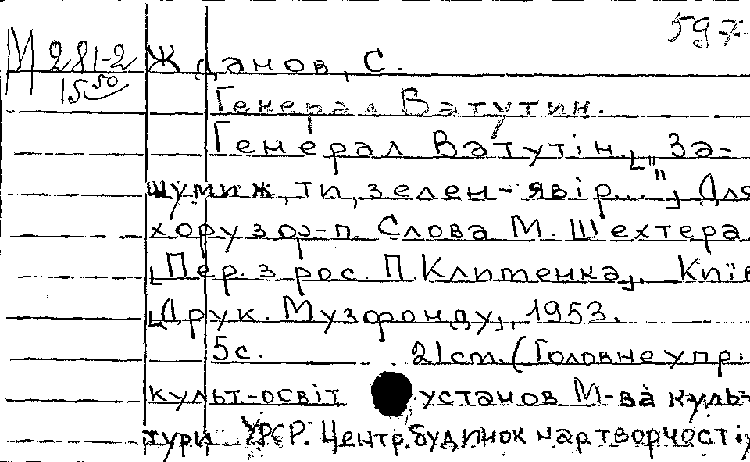 597
М 281-2 Жданов, С.
15 50
Генерал Ватутин.
Генерал Ватутін. ["За-
шуми ж, ти, зелен-явір..."] Для
хору з ф-п. Слова М. Шехтера
[Пер. з рос. П. Клименка]. Київ
[Друк. Музфонду], 1953.
5 с. 21 cm. (Головне упр.
культ-освіт установ М-ва куль-
тури УРСР. Центр. будинок нар творчості)